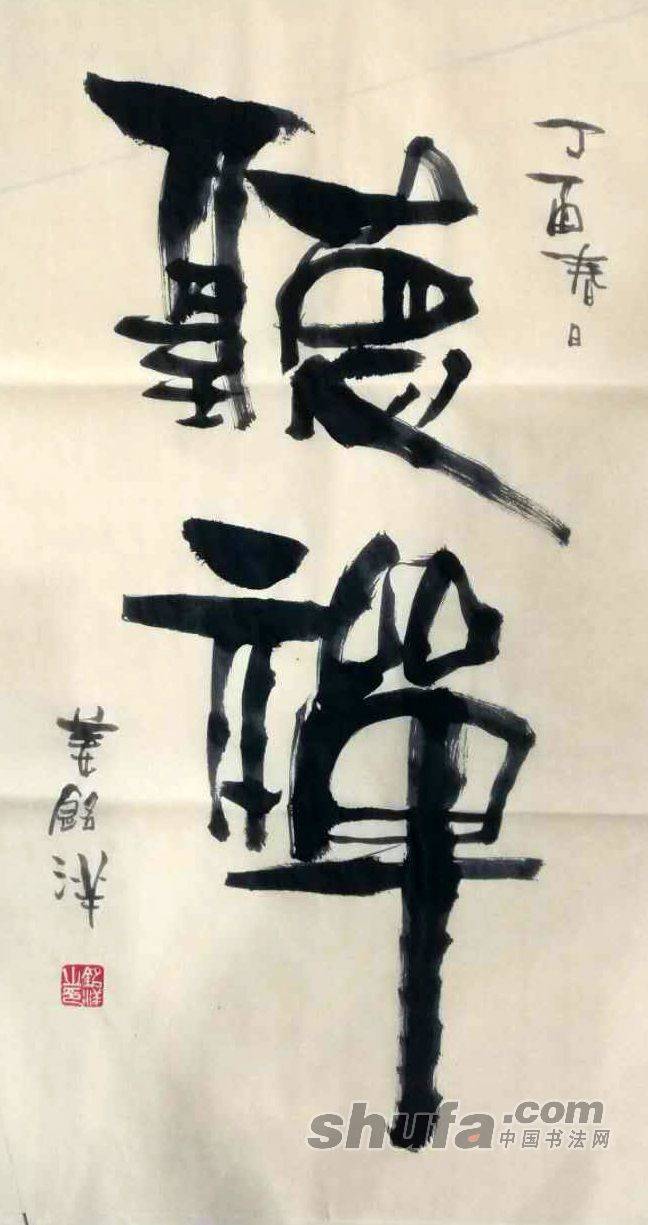 丁酉春日
聽禪
姜銘洋
銘洋之印
shufa.com
中国书法网